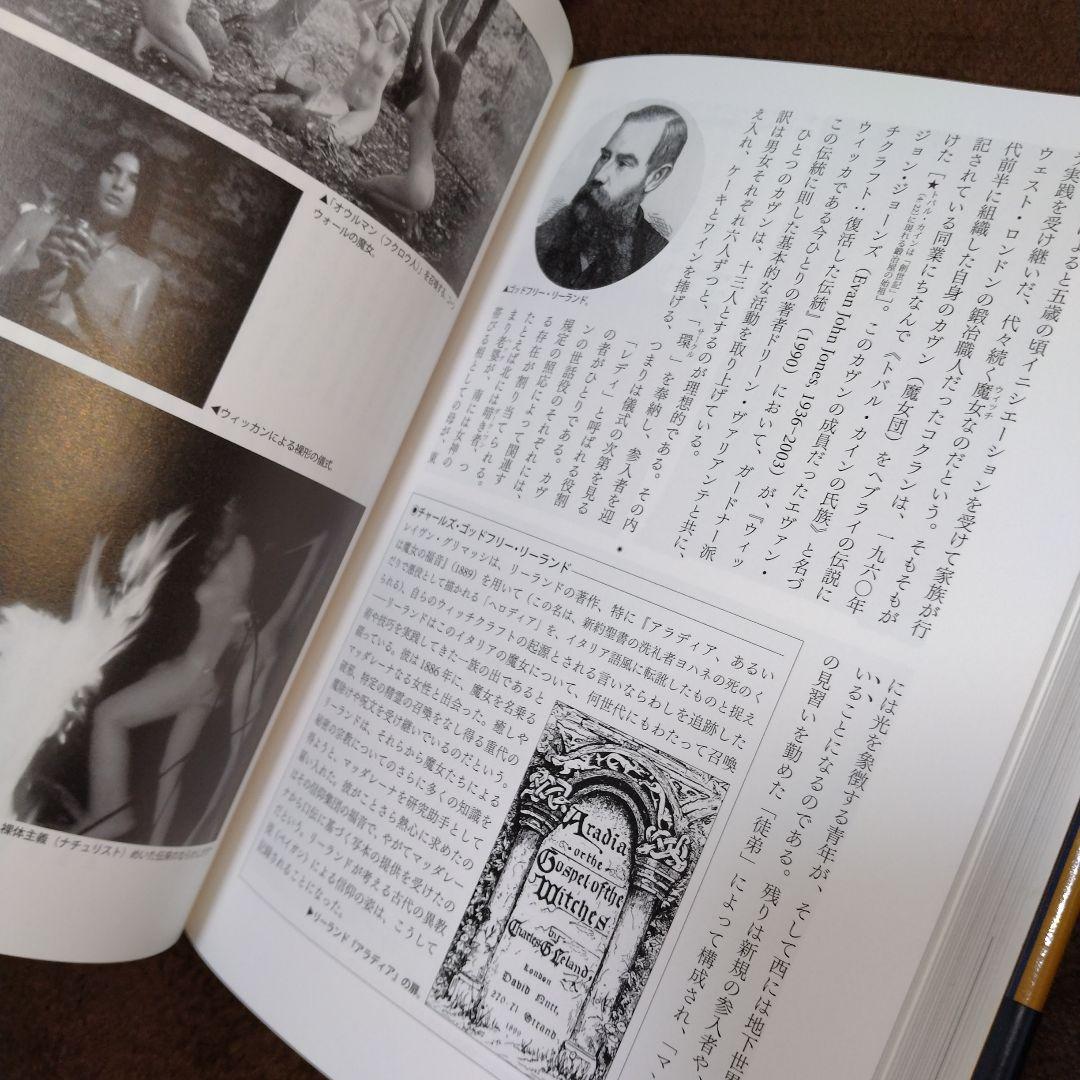 ▲「オウルマン(フクロウ人)」を召喚する、
ウォールの魔女。
◀ウィッカンによる裸形の儀式
裸体主義(ナチュリスト)めいた伝承の
実践を受け継いだ、
によると五歳の頃イニシエーションを受けて家族が行
ウェスト・ロンドンの鍛冶職人だったコクランは、そもそもが
代々続く魔女なのだという。
ウィッチ
代前半に組織した自身のカヴン(魔女団)をヘブライの伝説に
一九六〇年
記されている同業にちなんで《トバル・カインの氏族》と名づ
けた[★トバル・カインは「創世記」
に現れる鍛冶屋の始祖]。このカヴンの成員だったエヴァン・
ジョン・ジョーンズ(Evan John Jones 1936-2003)が、『ウィッ
チクラフト:復活した伝統』(1990)において、ガードナー派
ウィッカである今ひとりの著者ドリーン・ヴァリアンテと共に、
この伝統に則した基本的な活動を取り上げている。
ひとつのカヴンは、十三人とするのが理想的である。その内
訳は男女それぞれ六人ずつと、「環」を奉納し、参入者を迎
サークル
え入れ、ケーキとワインを捧げる、つまりは儀式の次第を見る
▲ゴッドフリー・リーランド。
「レディ」と呼ばれる役割
の者がひとりである。カヴ
ンの世話役のそれぞれには、
規定の照応によって関連す
る存在が割り当てられる。
たとえば北には暗き者、つ
まり老婆が、南には女神の
帯びる相としての母が、東
には光を象徴する青年が、そして西には地下世界
いることになるのである。残りは新規の参入者や、
の見習いを勤めた「徒弟」によって構成され、「マ
●チャールズ・ゴッドフリー・リーランド
レイヴン・グリマッシは、リーランドの著作、特に『アラディア、あるい
は魔女の福音』(1889)を用いて(この名は、新約聖書の洗礼者ヨハネの死のく
だりで悪役として描かれる「ヘロディア」を、イタリア語風に転訛したものと捉え
られる)、自らのウィッチクラフトの起源とされる言いならわしを追跡した
――リーランドはこのイタリアの魔女について、何世代にもわたって召喚
術や技巧を実践してきた一族の出であると
語っている。彼は1886年に、魔女を名乗る
マッダレーナなる女性と出会った。癒しや
破邪、特定の精霊の召喚をなし得る重代の
魔除けや呪文を受け継いでいるのだという。
リーランドは、それから魔女たちによる
秘密の宗教についてのさらに多くの知識を
得ようと、マッダレーナを研究助手として
雇い入れた。彼がことさら熱心に求めたの
はその信仰集団の福音で、やがてマッダレー
ナから口伝に基づく写本の提供を受けたの
だという。リーランドが考える古代の異教
徒(ペイガン)による信仰の姿は、こうして
記録されることになった。
▶リーランド『アラディア』の扉。
Aradia
or the
Gospel of the
Witches
by
Charles G. Leland
London
David Nutt,
270-71 Strand,
1899